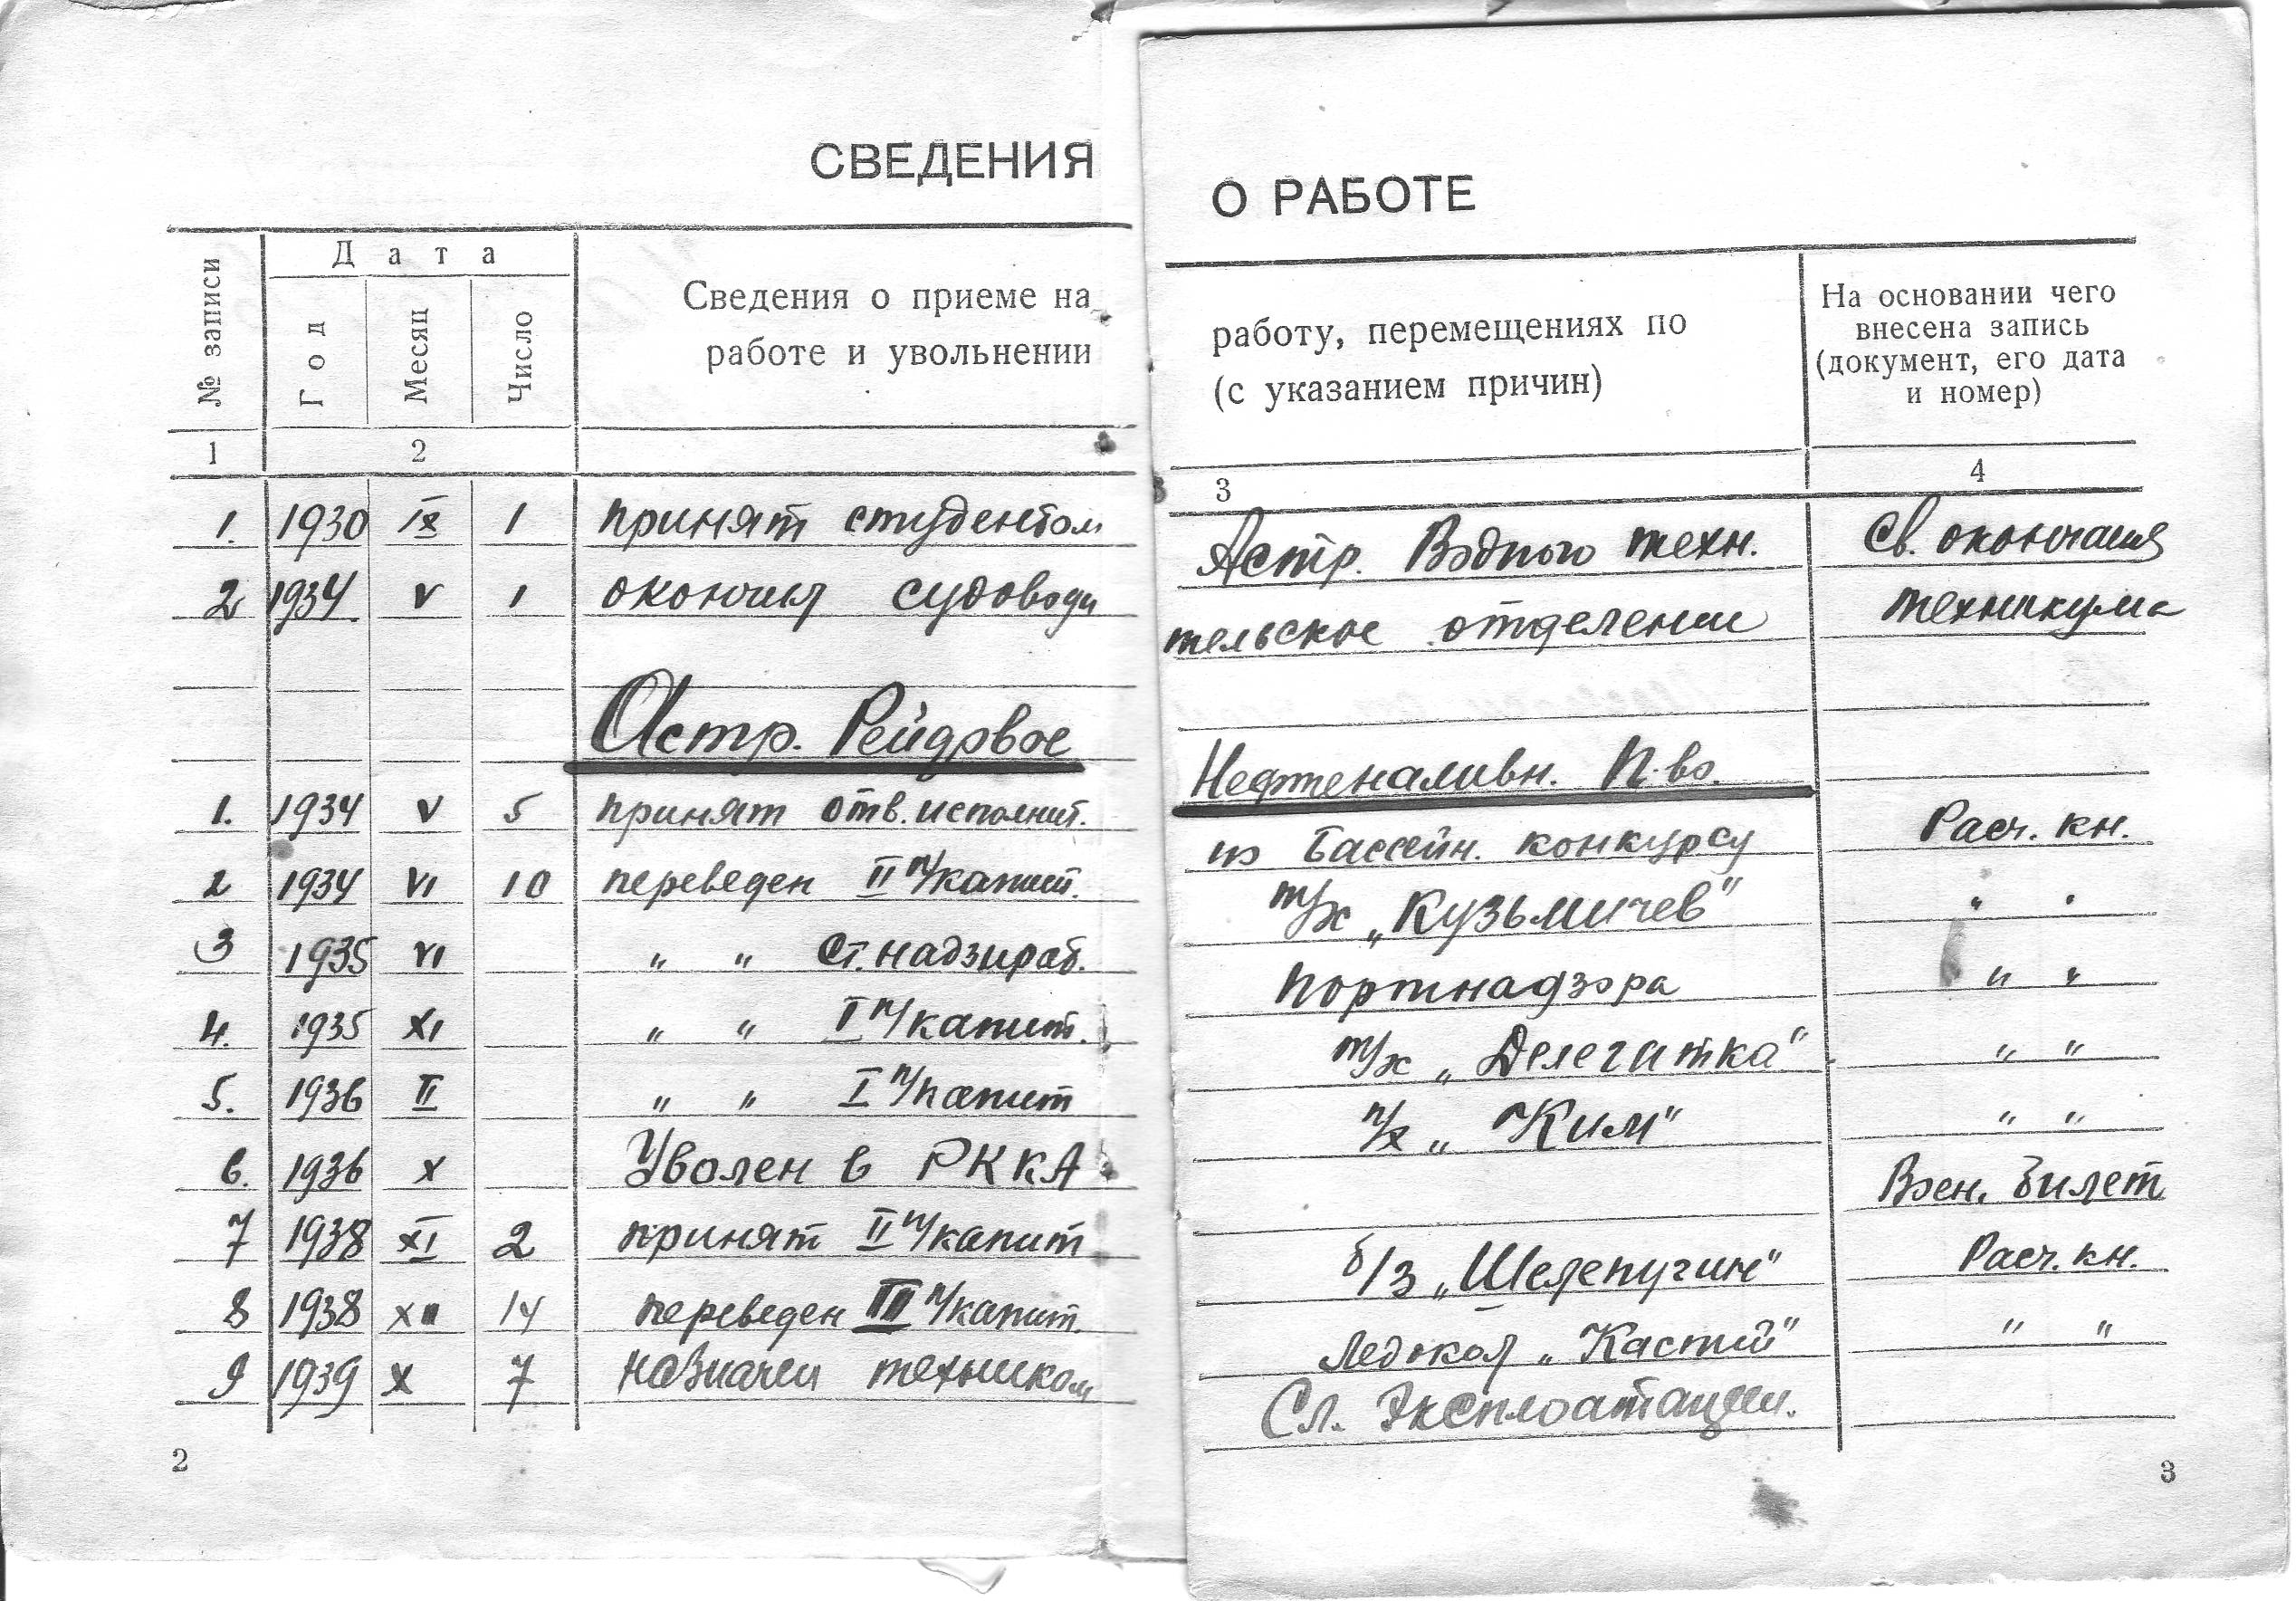 СВЕДЕНИЯ О РАБОТЕ
№ записи
Дата
Год
Месяц
Число
Сведения о приеме на работу, перемещениях по
работе и увольнении (с указанием причин)
На основании чего
внесена запись
(документ, его дата
и номер)
1 2 3 4
1. 1930 IX 1 принят студентом Астр. Водного техн. Св. окончания
2 1934 V 1 окончил судоводи тельское отделение техникума
Астр. Рейдовое Нефтеналивн. П-во.
1. 1934 V 5 принят отв. исполнит. по Бассейн. конкурсу Расч. кн.
2 1934 VI 10 переведен II п/капит. т/х „Кузьмичев" " "
3 1935 VI " " Ст. надзират. Портнадзора " "
4. 1935 XI " " I п/капит. т/х „Делегатка" " "
5. 1936 II " " I п/капит п/х „Ким" " "
6. 1936 X Уволен в РККА Воен. билет
7 1938 XI 2 принят II п/капит б/з „Шелепугин" Расч. кн.
8 1938 XII 14 переведен III п/капит. Ледокол „Каспий" " "
9 1939 X 7 назначен техником Сл. Эксплоатации.
2 3